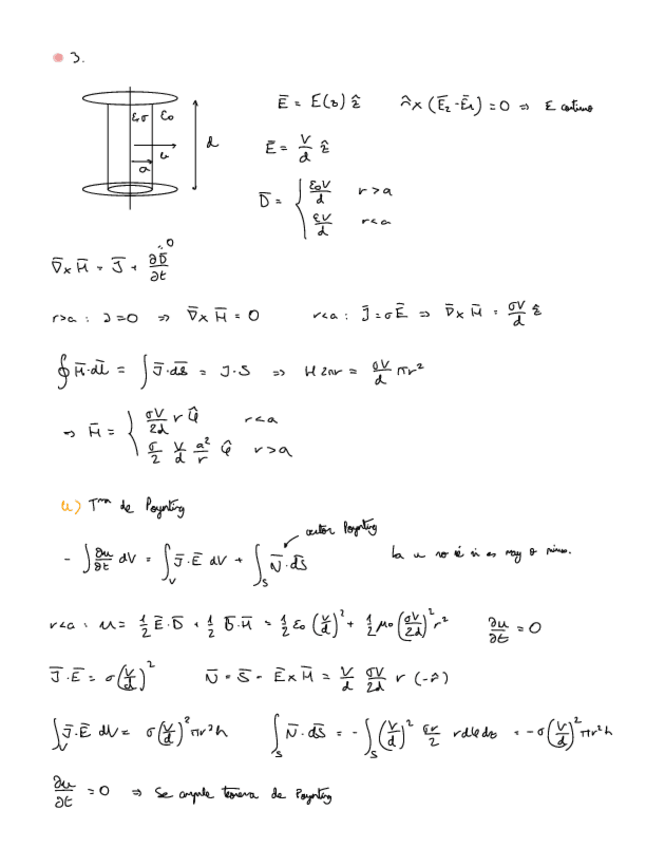 3.
εσ ε₀
a
d
Ē = E(z) ẑ n̂ × (Ē₂ - Ē₁) = 0 ⇒ E continuo
Ē = V/d ẑ
D̄ = { ε₀V/d r > a
εV/d r < a
∇̄ × H̄ = J̄ + ∂D̄/∂t 0
r>a : J = 0 ⇒ ∇̄ × H̄ = 0 r<a : J̄ = σĒ ⇒ ∇̄ × H̄ = σV/d ẑ
∮ H̄·dl̄ = ∫ J̄·ds̄ = J·S ⇒ H 2πr = σV/d πr²
⇒ H̄ = { σV/2d r φ̂ r<a
σ/2 V/d a²/r φ̂ r>a
Tma de Poynting
vector Poynting
- ∫ ∂u/∂t dV = ∫_V J̄·Ē dV + ∫_S N̄·ds̄ La u no sé si es may o minus.
r<a : u = 1/2 Ē·D̄ + 1/2 B̄·H̄ = 1/2 ε₀ (V/d)² + 1/2 μ₀ (σV/2d)² r² ∂u/∂t = 0
J̄·Ē = σ(V/d)² N̄ = S̄ = Ē × H̄ = V/d σV/2d r (-r̂)
∫_V J̄·Ē dV = σ(V/d)² πr²h ∫_S N̄·ds̄ = - ∫_S (V/d)² σr/2 r dφ dz = -σ(V/d)² πr²h
∂u/∂t = 0 ⇒ Se cumple teorema de Poynting